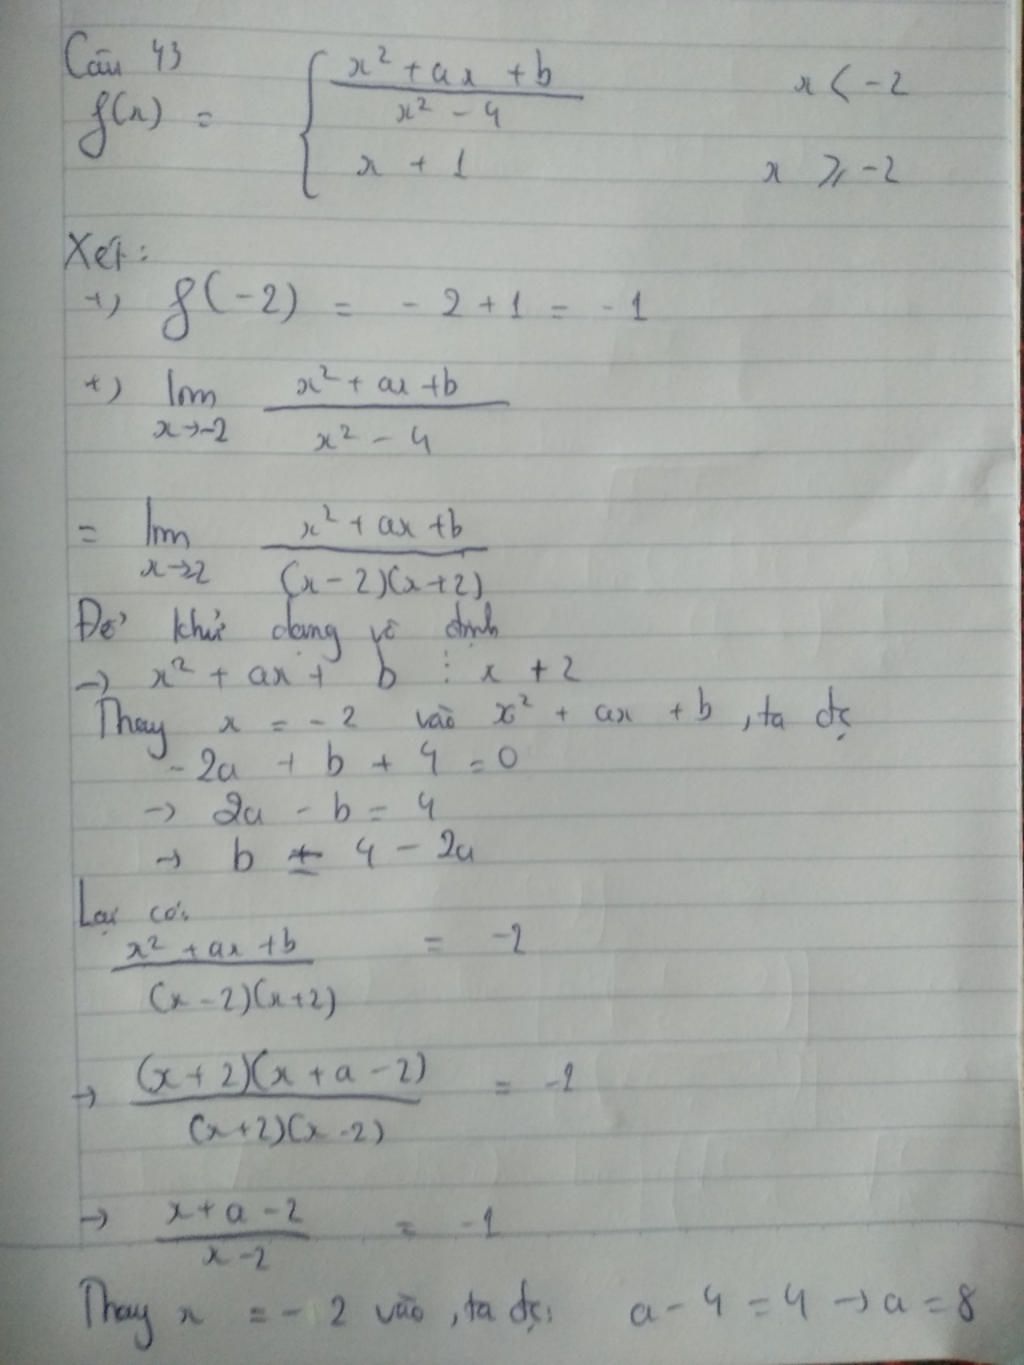 Câu 43
f(x) = { x² + ax + b / x² - 4   x < -2
x + 1   x ⩾ -2
Xét:
+) f(-2) = - 2 + 1 = - 1
+) lim x→-2 x² + ax + b / x² - 4
= lim x→-2 x² + ax + b / (x - 2)(x + 2)
Để khử dạng vô định
→ x² + ax + b ⋮ x + 2
Thay x = - 2 vào x² + ax + b, ta đc
- 2a + b + 4 = 0
→ 2a - b = 4
→ b = 4 - 2a
Lại có:
x² + ax + b / (x - 2)(x + 2) = -1
→ (x + 2)(x + a - 2) / (x + 2)(x - 2) = -1
→ x + a - 2 / x - 2 = -1
Thay x = - 2 vào, ta đc: a - 4 = 4 → a = 8